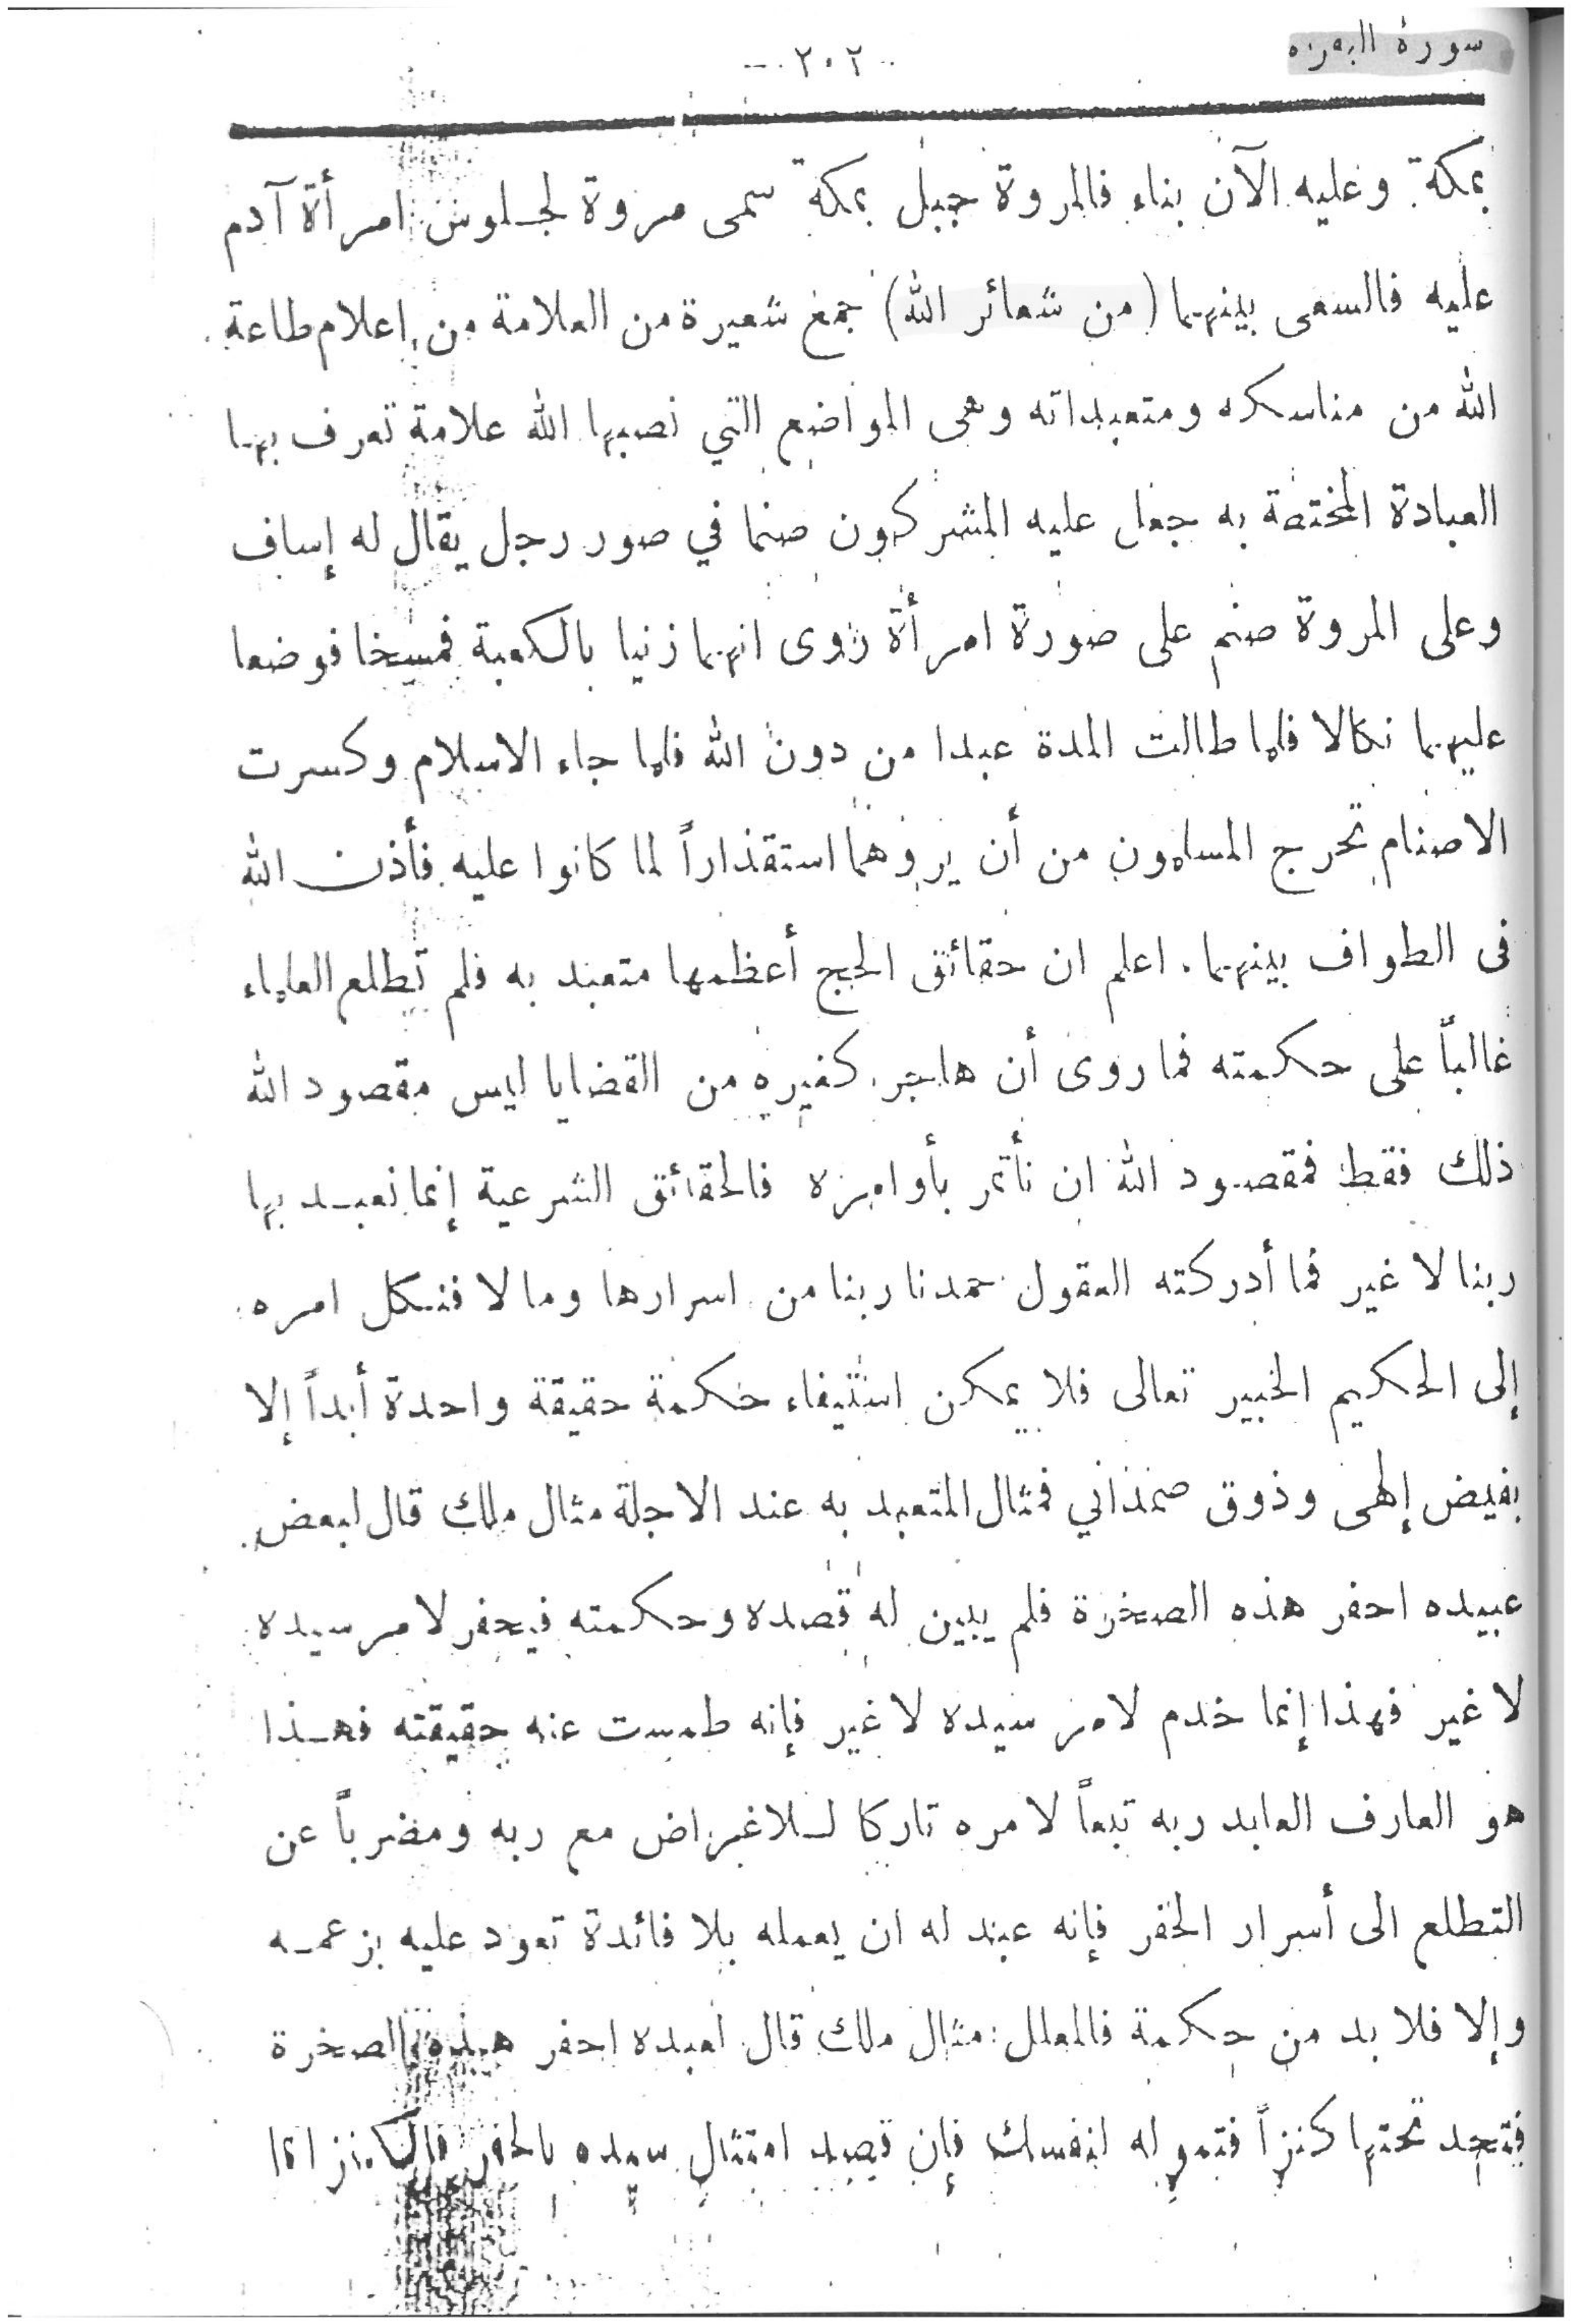 سورة البقرة
٢٠٢
بمكة وعليه الآن بناء فالمروة جبل بمكة سمى مروة لجلوس امرأة آدم
عليه فالسعى بينهما (من شعائر الله) جمع شعيرة من العلامة من اعلام طاعة
الله من مناسكه ومتعبداته وهى المواضع التي نصبها الله علامة تعرف بها
العبادة المختصة به جعل عليه المشركون صنما في صور رجل يقال له إساف
وعلى المروة صنم على صورة امرأة روى انهما زنيا بالكعبة فمسخا فوضعا
عليهما نكالا فلما طالت المدة عبدا من دون الله فلما جاء الاسلام وكسرت
الاصنام تحرج المسلمون من أن يروهما استقذاراً لما كانوا عليه فأذن الله
فى الطواف بينهما. اعلم ان حقائق الحج أعظمها متعبد به فلم تطلع العلماء
غالباً على حكمته فما روى أن هاجر كغيره من القضايا ليس مقصود الله
ذلك فقط فمقصود الله ان نأتمر بأوامره فالحقائق الشرعية إنما نعبد بها
ربنا لا غير فما أدركته العقول حمدنا ربنا من اسرارها وما لا فنكل امره
إلى الحكيم الخبير تعالى فلا يمكن استيفاء حكمة حقيقة واحدة أبداً إلا
بفيض إلهى وذوق صمداني فمثال المتعبد به عند الاجلة مثال ملك قال لبعض
عبيده احفر هذه الصخرة فلم يبين له قصده وحكمته فيحفر لامر سيده
لا غير فهذا إنما خدم لامر سيده لا غير فإنه طمست عنه حقيقته فهذا
هو العارف العابد ربه تبعاً لامره تاركا للاغراض مع ربه ومضرباً عن
التطلع الى أسرار الحفر فإنه عبد له ان يعمله بلا فائدة تعود عليه بزعمه
وإلا فلا بد من حكمة فالمعلل مثال ملك قال لعبده احفر هذه الصخرة
فتجد تحتها كنزاً فتموله لنفسك فإن قصد امتثال سيده بالحفر فالكنز انما